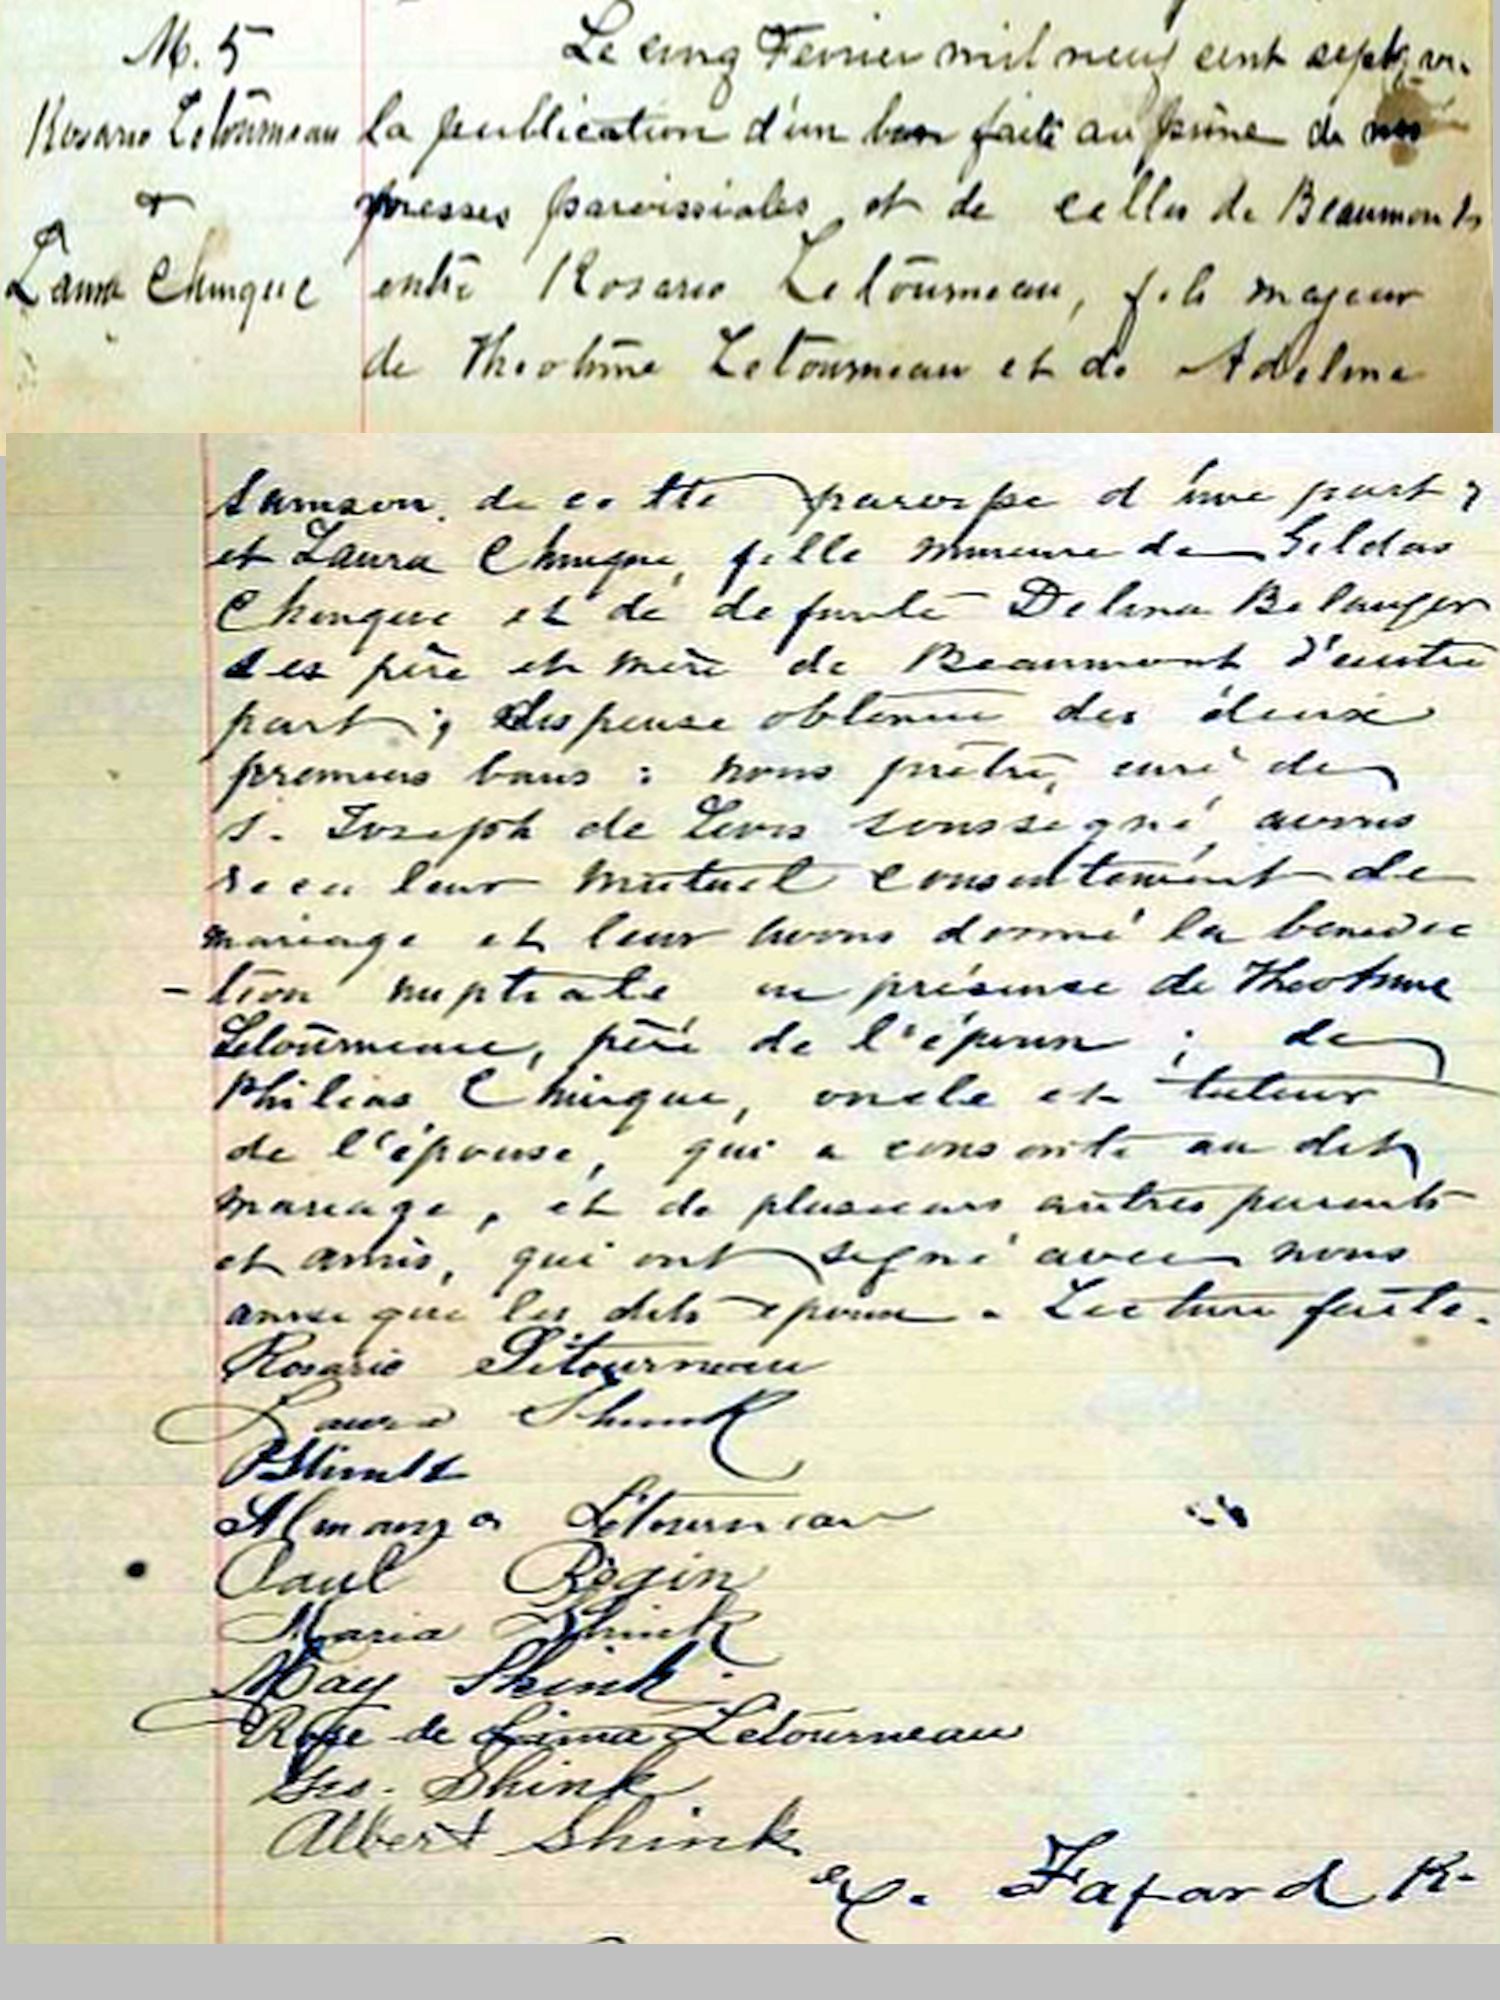 M. 5
Rosario Letourneau
+
Laura Chinque
Le cinq Fevrier mil neuf cent sept, vu
la publication d'un ban faite au prône de nos
messes paroissiales et de celles de Beaumont
entre Rosario Letourneau, fils majeur
de Theotime Letourneau et de Adelina
Samson de cette paroisse d'une part ;
et Laura Chinque, fille mineure de Gildas
Chinque et de defunte Delina Belanger
ses père et mère de Beaumont d'autre
part ; dispense obtenue des deux
premiers bans : nous prêtre, curé de
S. Joseph de Levis soussigné avons
recu leur mutuel consentement de
mariage et leur avons donné la benedic
-tion nuptiale en présence de Theotime
Letourneau, père de l'époux ; de
Philias Chinque, oncle et tuteur
de l'épouse, qui a consenti au dit
mariage, et de plusieurs autres parents
et amis, qui ont signé avec nous
ainsi que les dits époux. Lecture faite.
Rosario Létourneau
Laura Shink
P Shink
Almanza Létourneau
Paul Bégin
Maria Shink
May Shink.
Rose de Lima Letourneau
Geo. Shink
Albert Shink
Fafard